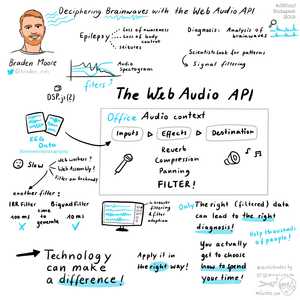 Deciphering Brainwaves with the Web Audio API
Braden Moore
Epilepsy
Loss of awareness
Loss of body control
Seizures
Diagnosis: Analysis of brainwaves
Scientists look for patterns
Signal filtering
Audio
Spectrogram
filters?
DSP.jl(?)
The Web Audio API
Office Audio context
Inputs
Effects
Destination
Reverb
Compression
Panning
FILTER!
EEG
Data
Slow
Web Workers?
Web Assembly?
Filter on backend?
another filter:
IIRFilter
BiquadFilter
time to generate
400 ms
10 ms
Only The right (filtered) data
can lead to the right
diagnosis!
Help thousands
of people!
You actually
get to choose
how to spend
your time!
Technology
can make
a difference!
Apply it in
the right way!